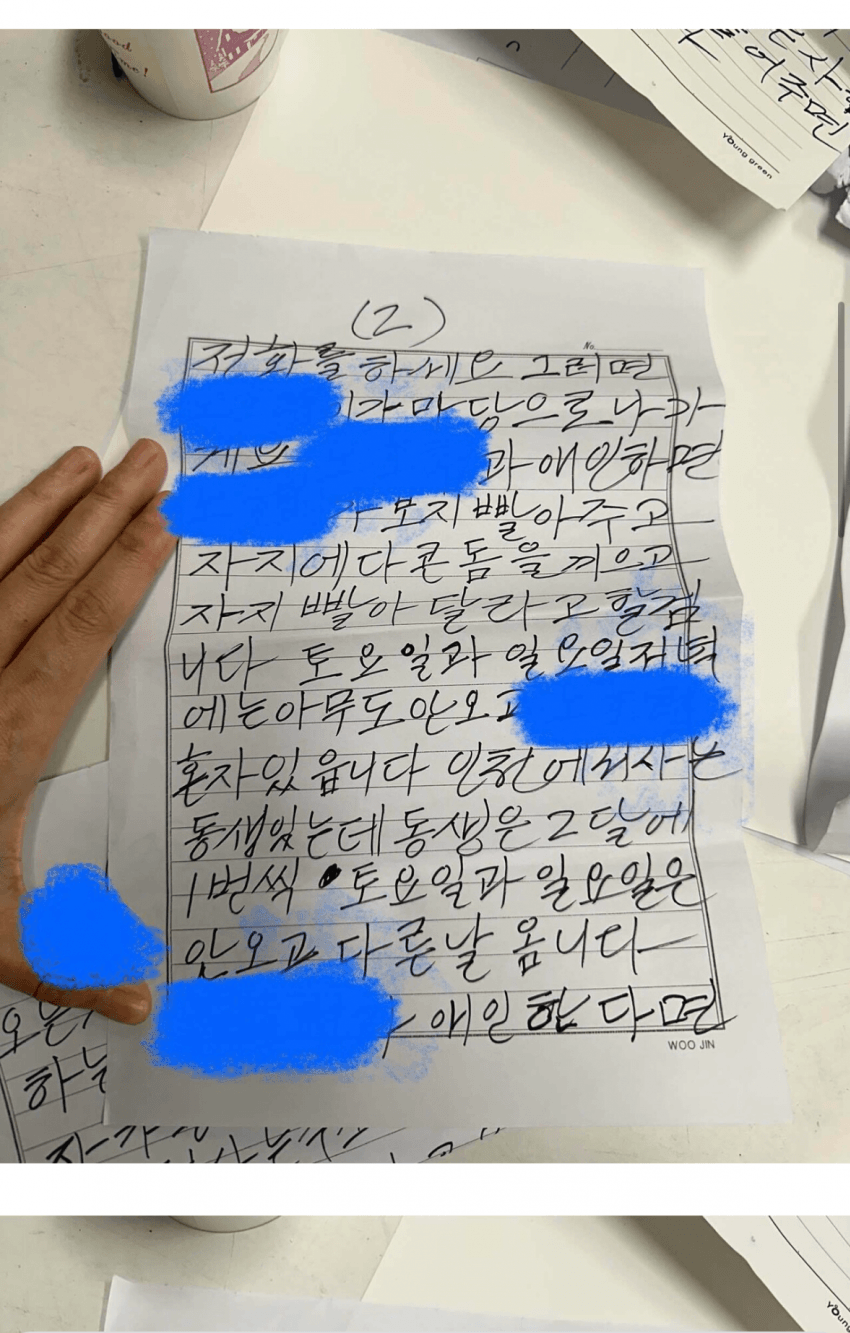 어주면
Young green
(2)
No.
저화를 하세요 그러면
가 마당으로 나가
과 애인하면
보지 빨아주고
자지에다 콘돔을 끼우고
자지 빨아 달라고 할겁
니다 토요일과 일요일저녁
에는 아무도 안오고
혼자있읍니다 인천에서사는
동생있는데 동생은 2달에
1번씩 토요일과 일요일은
안오고 다른날 옵니다
애인한다면
WOO JIN
하는